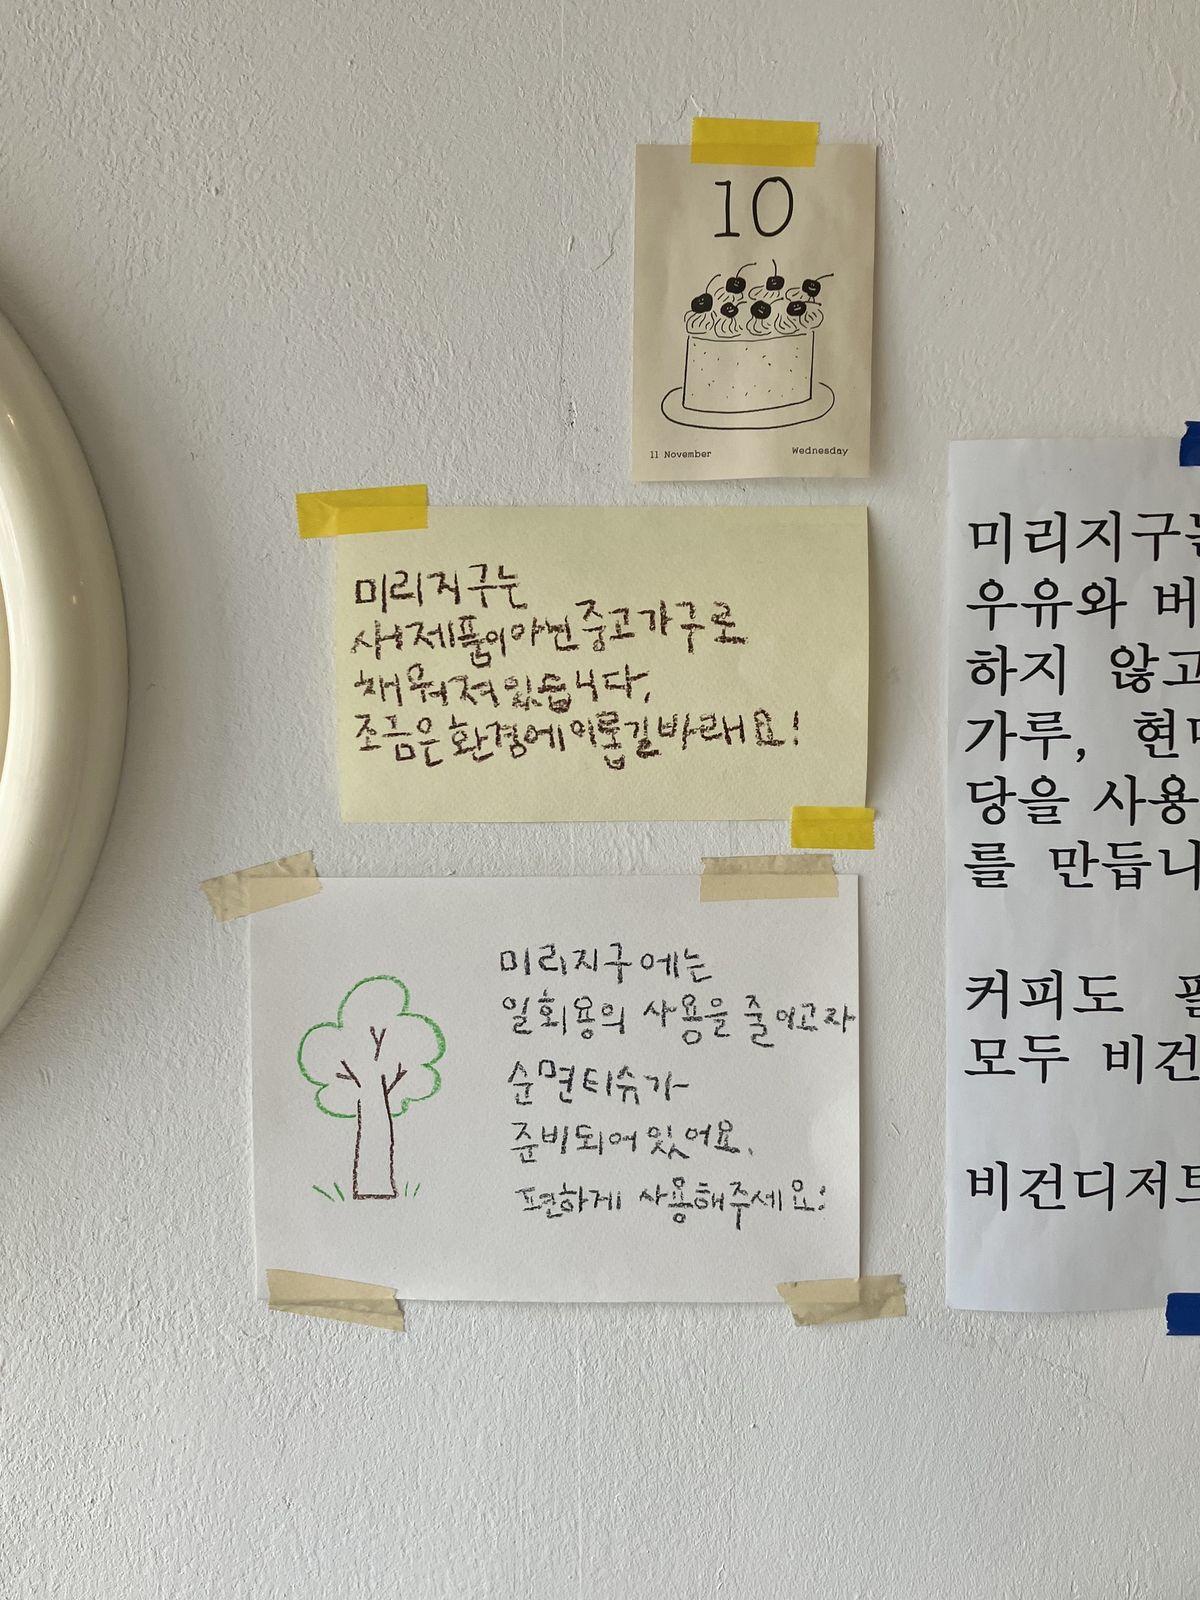 10
11 November Wednesday
미리지구는
새제품이아닌중고가구로
채워져있습니다,
조금은환경에이롭길바래요!
미리지구에는
일회용의 사용을 줄이고자
순면티슈가
준비되어있어요.
편하게 사용해주세요!
미리지구
우유와
하지 않고
가루,
당을 사용
를
커피도
모두 비건